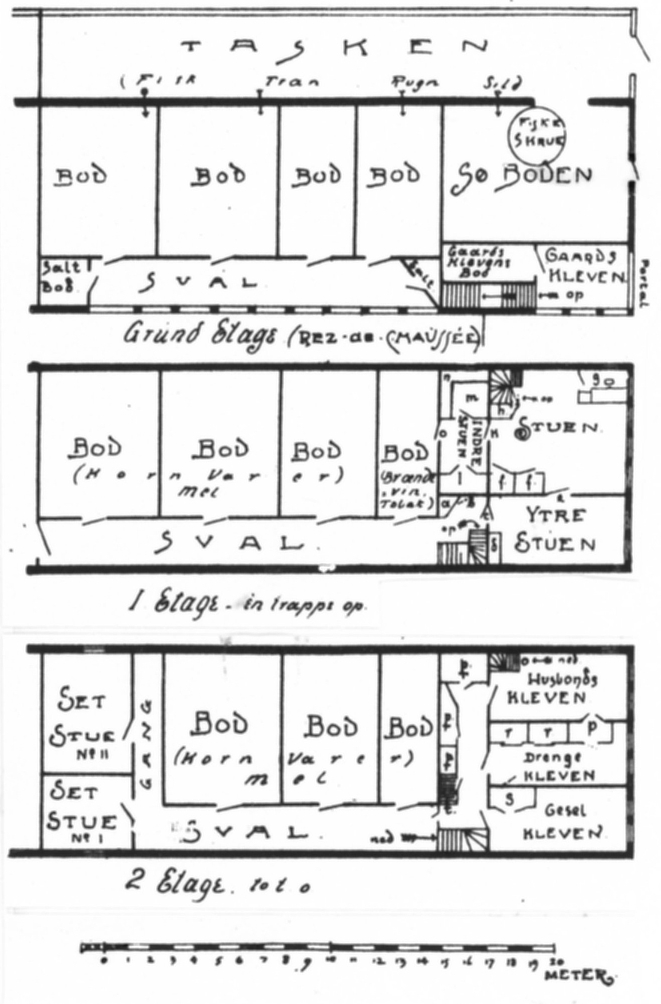 TASKEN
(Fisk Tran Rugn Sild
FISKE
SKRUE
BOD BOD BOD BOD SØ BODEN
Salt
Bod
SVAL
Salt
Gaards
Klevens
Bod
GAARDS
KLEVEN
op
Portal
Grund Etage (REZ-de-CHAUSSÉE)
n m h i op g
BOD BOD BOD BOD
(Korn Varer)
mel
(Brænde
vin
Tobak)
o INDRE
STUEN
k STUEN
l f f
a b
op
YTRE
STUEN
SVAL
1 Etage - en trappe op.
SET
STUE
Nº II
GANG
BOD BOD BOD
(Korn Varer)
mel
p
p
p
ned
Husbonds
KLEVEN
r r p
Drenge
KLEVEN
s
Gesel
KLEVEN
SET
STUE
Nº I
SVAL
ned
2 Etage. to t. o
0 1 2 3 4 5 6 7 8 9 10 11 12 13 14 15 16 17 18 19 20
METER